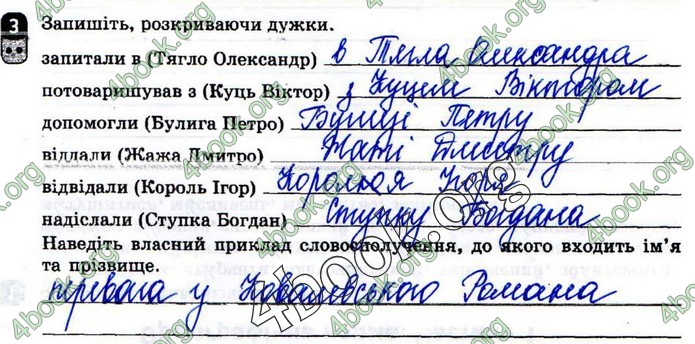 3 Запишіть, розкриваючи дужки.
запитали в (Тягло Олександр) в Тягла Олександра
потоваришував з (Куць Віктор) з Куцем Віктором
допомогли (Булига Петро) Булизі Петру
віддали (Жажа Дмитро) Жажі Дмитру
відвідали (Король Ігор) Короля Ігоря
надіслали (Ступка Богдан) Ступку Богдана
Наведіть власний приклад словосполучення, до якого входить ім’я
та прізвище.
перевага у Ковалевського Романа
4book.org